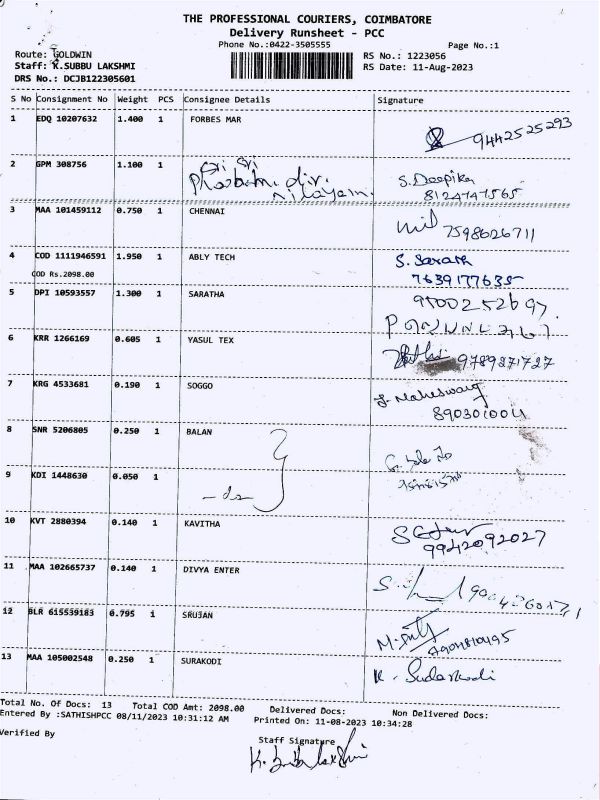 THE PROFESSIONAL COURIERS, COIMBATORE
Delivery Runsheet - PCC
Phone No.:0422-3505555 Page No.:1
Route: GOLDWIN RS No.: 1223056
Staff: K.SUBBU LAKSHMI RS Date: 11-Aug-2023
DRS No.: DCJB122305601
S No Consignment No Weight PCS Consignee Details Signature
1 EDQ 10207632 1.400 1 FORBES MAR
9442525293
2 GPM 308756 1.100 1 Sri Sri
S. Deepika
8124747565
3 MAA 101459112 0.750 1 CHENNAI
7598626711
4 COD 1111946591 1.950 1 ABLY TECH S. Sarath
COD Rs.2098.00 7639177635
5 DPI 10593557 1.300 1 SARATHA
6 KRR 1266169 0.605 1 YASUL TEX
9789271727
7 KRG 4533681 0.190 1 SOGGO
8903010011
8 SNR 5206805 0.250 1 BALAN
9 KDI 1448630 0.050 1
- do
10 KVT 2880394 0.140 1 KAVITHA
9942092027
11 MAA 102665737 0.140 1 DIVYA ENTER
12 BLR 615539183 0.795 1 SRUJAN
13 MAA 105002548 0.250 1 SURAKODI
Total No. Of Docs: 13 Total COD Amt: 2098.00 Delivered Docs: Non Delivered Docs:
Entered By :SATHISHPCC 08/11/2023 10:31:12 AM Printed On: 11-08-2023 10:34:28
Verified By Staff Signature